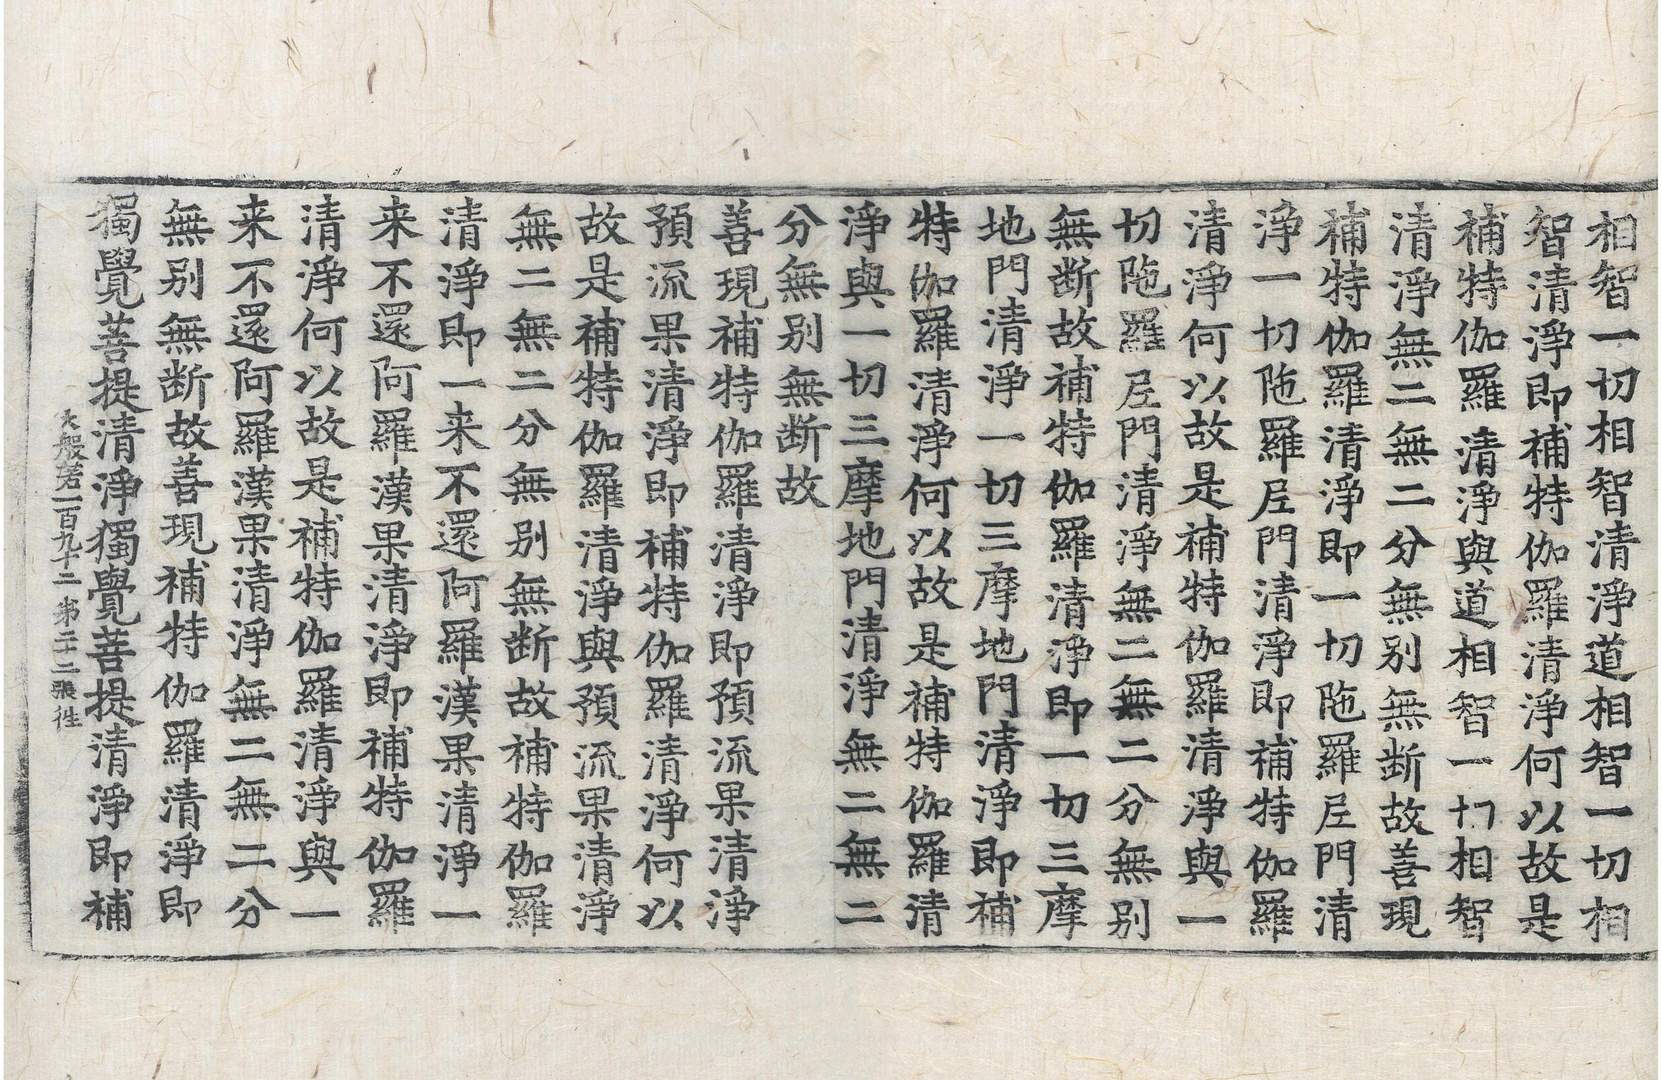 相智一切相智清淨道相智一切相
智清淨即補特伽羅清淨何以故是
補特伽羅清淨與道相智一切相智
清淨無二無二分無別無断故善現
補特伽羅清淨即一切陁羅尼門清
淨一切陁羅尼門清淨即補特伽羅
清淨何以故是補特伽羅清淨與一
切陁羅尼門清淨無二無二分無別
無断故補特伽羅清淨即一切三摩
地門清淨一切三摩地門清淨即補
特伽羅清淨何以故是補特伽羅清
淨與一切三摩地門清淨無二無二
分無別無断故
善現補特伽羅清淨即預流果清淨
預流果清淨即補特伽羅清淨何以
故是補特伽羅清淨與預流果清淨
無二無二分無別無断故補特伽羅
清淨即一来不還阿羅漢果清淨一
来不還阿羅漢果清淨即補特伽羅
清淨何以故是補特伽羅清淨與一
来不還阿羅漢果清淨無二無二分
無別無断故善現補特伽羅清淨即
獨覺菩提清淨獨覺菩提清淨即補
大般若一百九十二 第二十二張 徃